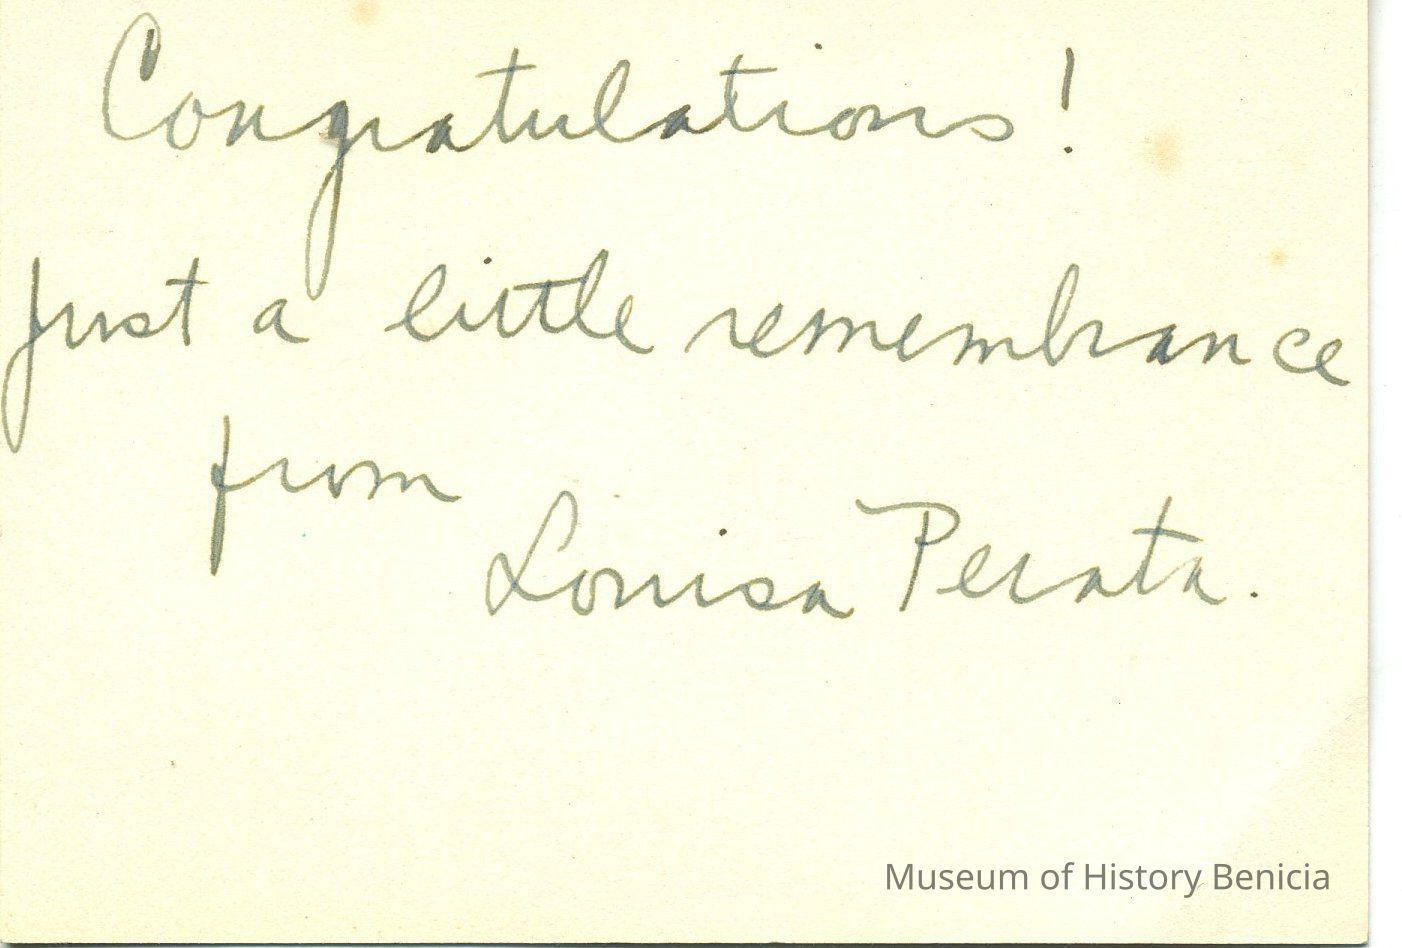 Congratulations!
Just a little remembrance
from
Louisa Perata.
Museum of History Benicia